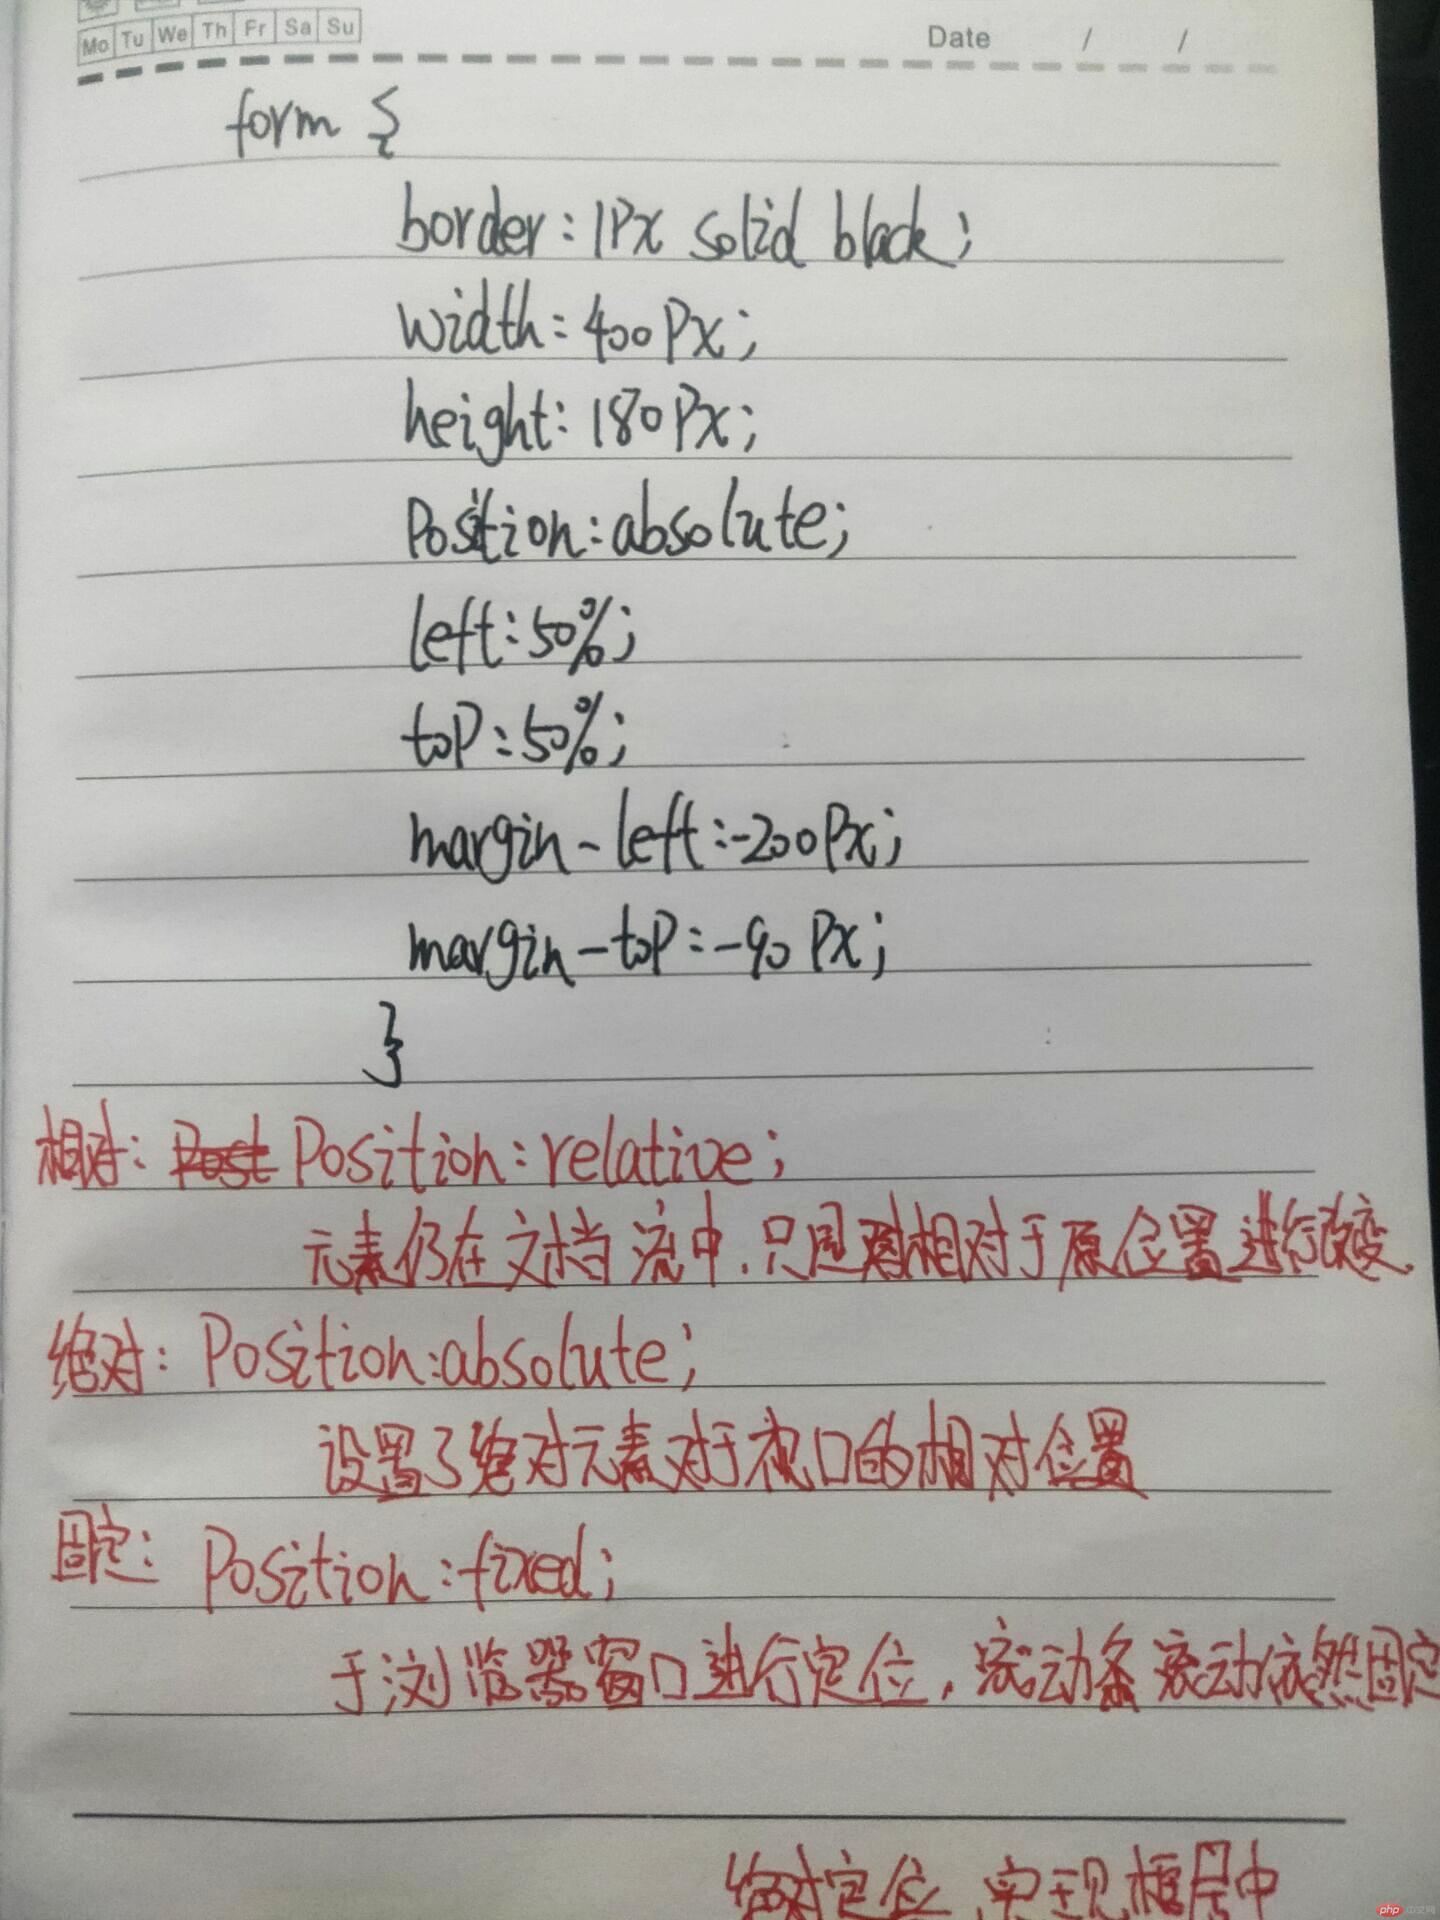 Mo Tu We Th Fr Sa Su
Date / /
form {
border: 1Px solid black;
width: 400Px;
height: 180Px;
Position: absolute;
left: 50%;
toP: 50%;
margin-left: -200Px;
margin-toP: -90Px;
}
相对: Position: relative;
元素仍在文档流中,只是相对于原位置进行改变.
绝对: Position: absolute;
设置了绝对元素对于视口的相对位置
固定: Position: fixed;
于浏览器窗口进行定位,滚动条滚动依然固定
绝对定位,实现框居中
php 中文网